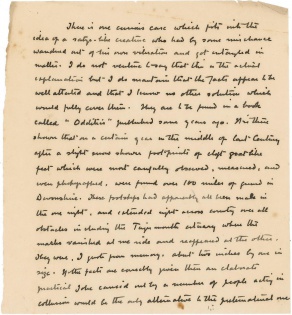 There is one curious case which fits into the
idea of a satyr-like creature who had by some mischance
wandered out of his own vibration and got entangled in
matter. I do not venture to say that this is the actual
explanation but I do maintain that the facts appear to be
well attested and that I know no other solution which
would fully cover them. They are to be found in a book
called "Oddities" published some years ago. It is there
shown that on a certain year in the middle of last Century
after a slight snow shower footprints of cleft goat like
feet which were most carefully observed, measured, and
even photographed, were found over 100 miles of ground in
Devonshire. These footsteps had apparently all been made in
the one night, and extended right across country over all
obstacles including the Teign mouth estuary when the
marks vanished at one side and reappeared at the other.
They were, I quote from memory, about two inches by one in
size. If the facts are correctly given then an elaborate
practical Joke carried out by a number of people acting in
collusion would be the only alternative to the preternatural one